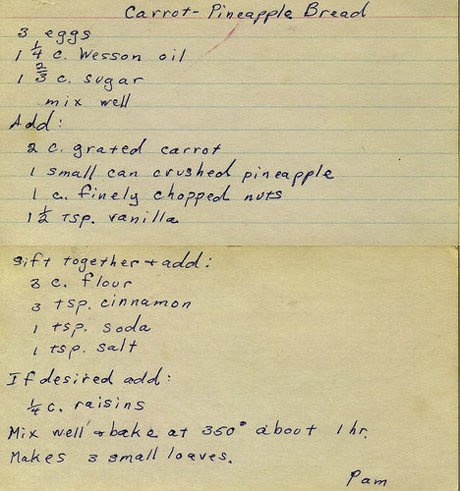 Carrot-Pineapple Bread
3 eggs
1 1/4 c. Wesson oil
1 2/3 c. sugar
mix well
Add:
2 c. grated carrot
1 small can crushed pineapple
1 c. finely chopped nuts
1 1/2 tsp. vanilla
Sift together + add:
3 c. flour
3 tsp. cinnamon
1 tsp. soda
1 tsp. salt
If desired add:
1/4 c. raisins
Mix well + bake at 350° about 1 hr.
Makes 3 small loaves.
Pam